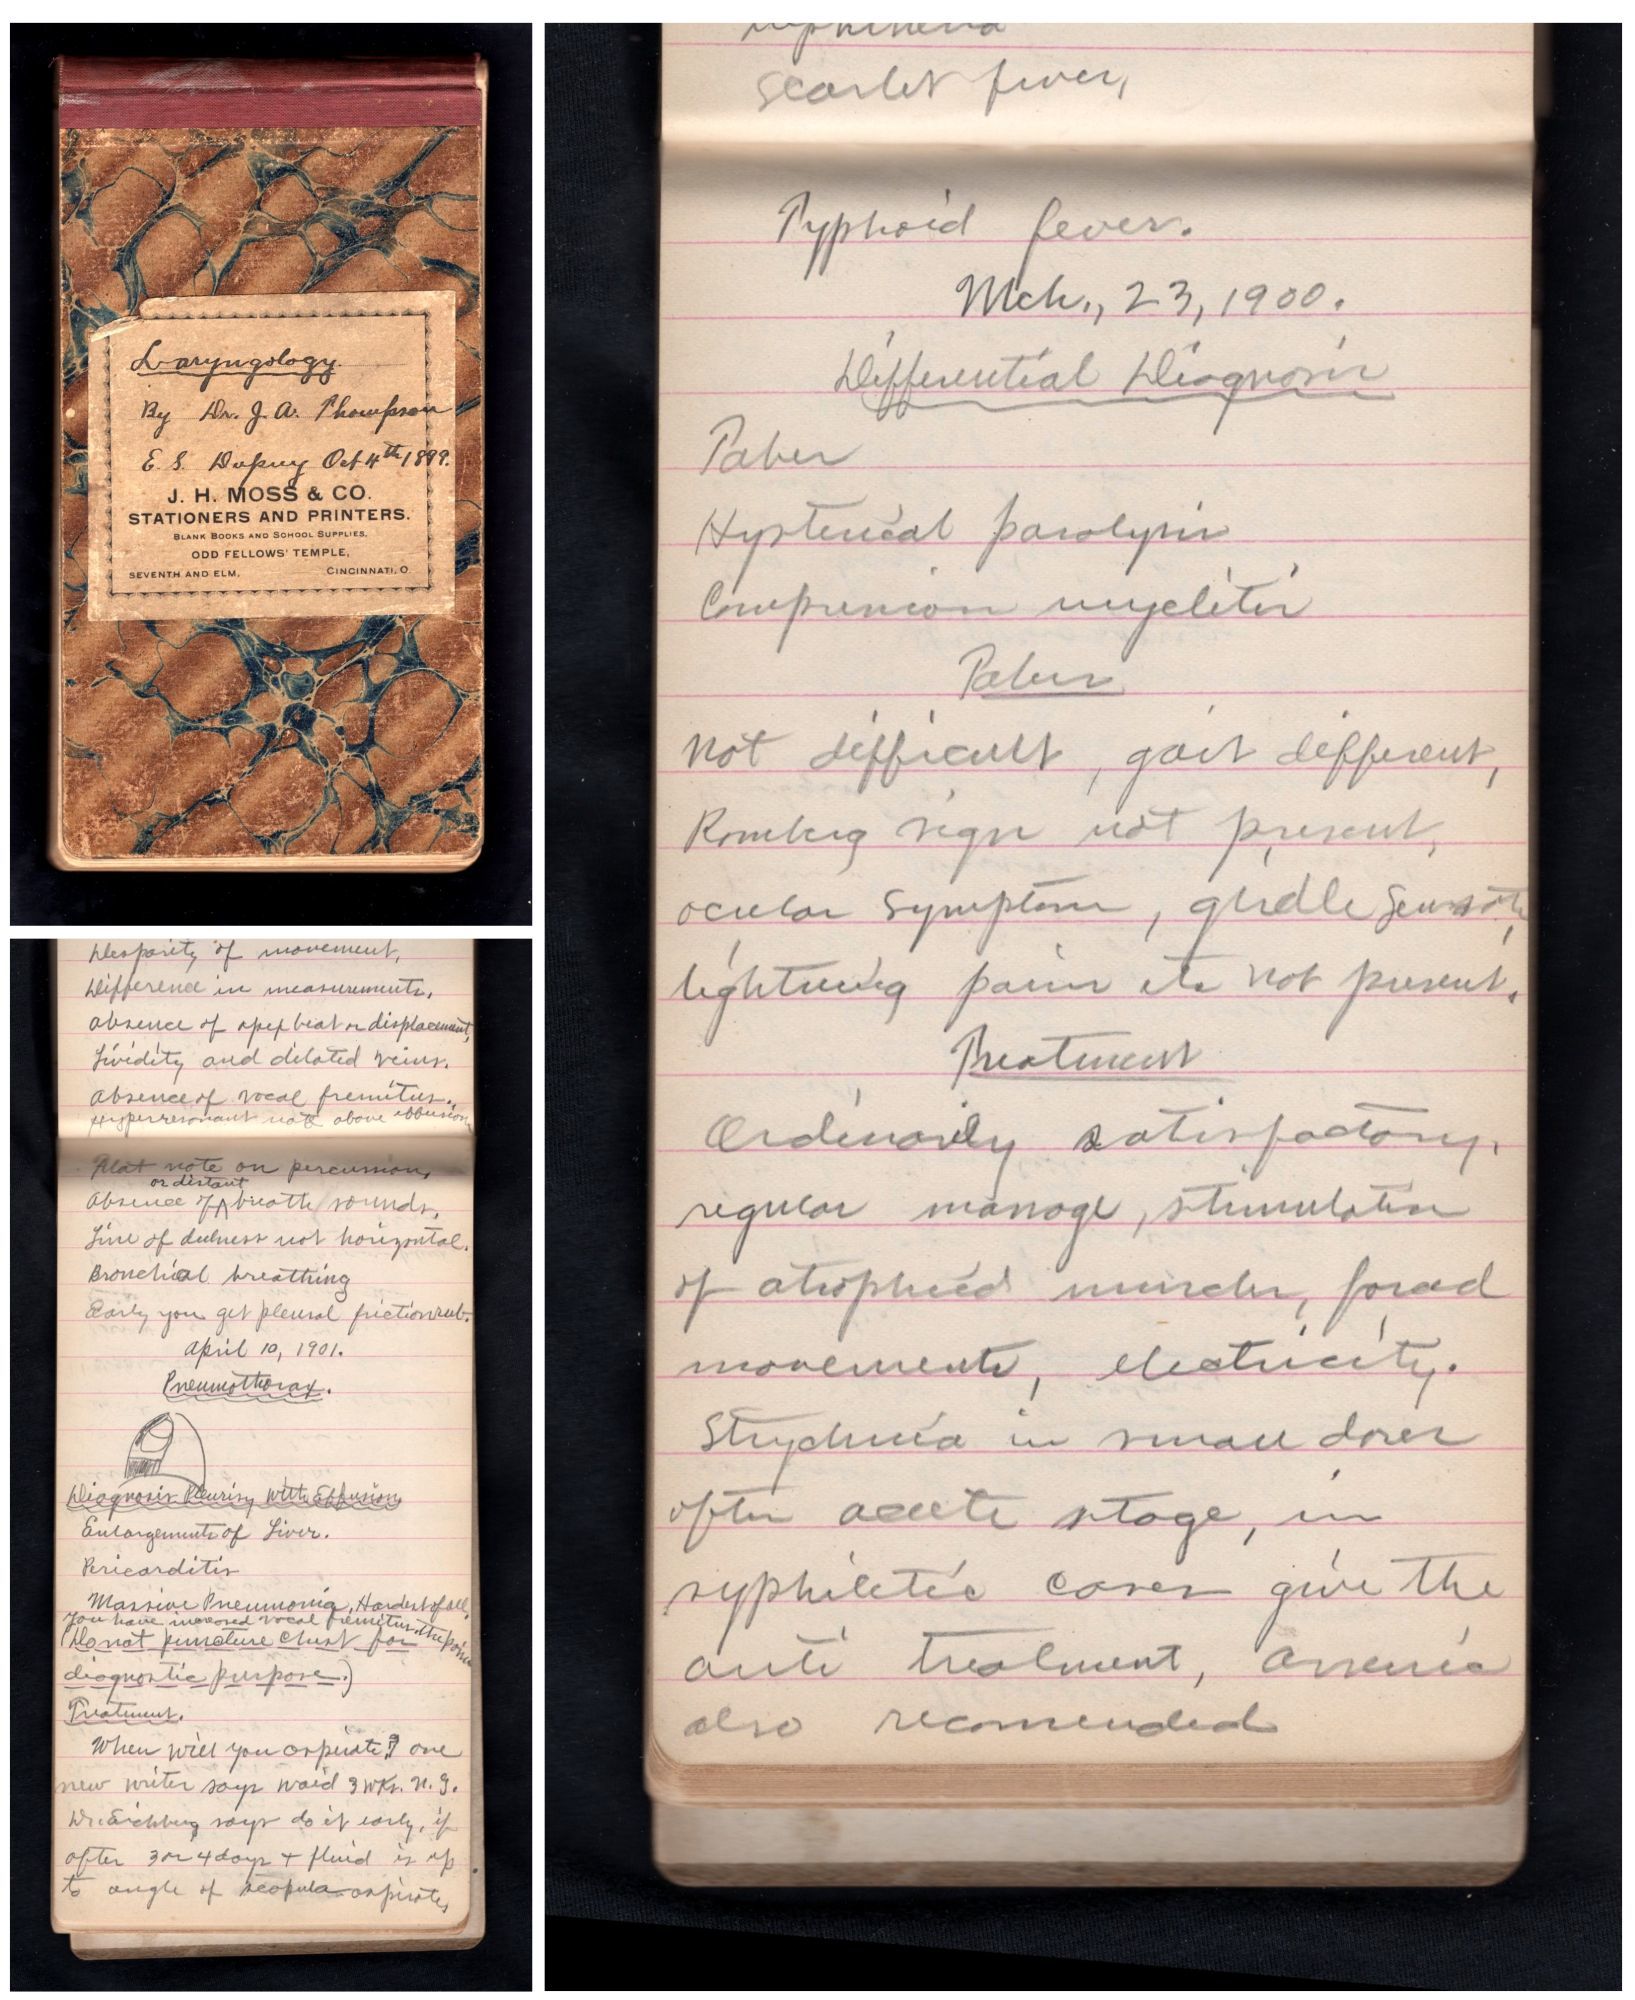 Laryngology.
By Dr. J. A. Thompson
E. S. Dupuy Oct 4th 1899.
J. H. MOSS & CO.
STATIONERS AND PRINTERS.
BLANK BOOKS AND SCHOOL SUPPLIES,
ODD FELLOWS' TEMPLE,
SEVENTH AND ELM, CINCINNATI, O.
Disparity of movement,
Difference in measurements,
absence of apex beat or displacement,
Lividity and dilated veins.
absence of vocal fremitus.
Hyperresonant note above effusion
Flat note on percussion,
or distant
absence of ^ breath sounds,
Line of dulness not horizontal.
Bronchial breathing
Early you get pleural friction rub.
April 10, 1901.
Pneumothorax.
Diagnosis Pleurisy with Effusion
Enlargements of Liver.
Pericarditis
Massive Pneumonia, Hardest of all,
You have increased vocal fremitus.
(Do not puncture chest for
diagnostic purpose.)
Treatment.
When will you aspirate? one
new writer says waid 3 wks. N. G.
Dr. Eichberg says do it early, if
after 3 or 4 days + fluid is up
to angle of scapula aspirate,
Scarlet fever,
Typhoid fever.
Mch., 23, 1900.
Differential Diagnosis
Tabes
Hysterical paralysis
Compression myelitis
Tabes
Not difficult, gait different,
Romberg sign not present,
ocular symptoms, girdle
lightning pains etc not present.
Treatment
Ordinarily satisfactory,
regular massage, stimulation
of atrophied muscles, forced
movements, electricity.
Strychnia in small doses
after acute stage, in
syphiletic cases give the
anti treatment, arsenic
also recomended